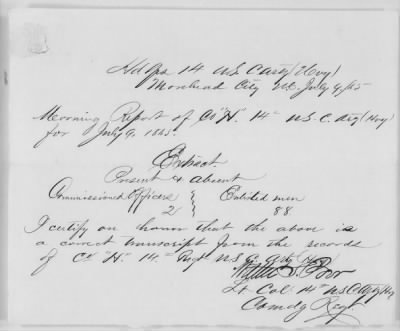 Hd Qrs 14 U.S.C. Arty (Hvy)
Morehead City N.C. July 9/65
Morning Report of Co "H." 14th U.S.C. Arty (Hvy)
for July 9, 1865.
Extract.
Present & Absent
Commissioned Officers } Enlisted men
2 } 88
I certify on honor that the above is
a correct transcript from the records
of Co "H." 14th Regt U.S.C. Arty (Hvy)
Walter S. Poor
Lt Col 14th U.S.C. Arty Hvy
Comdg Regt.